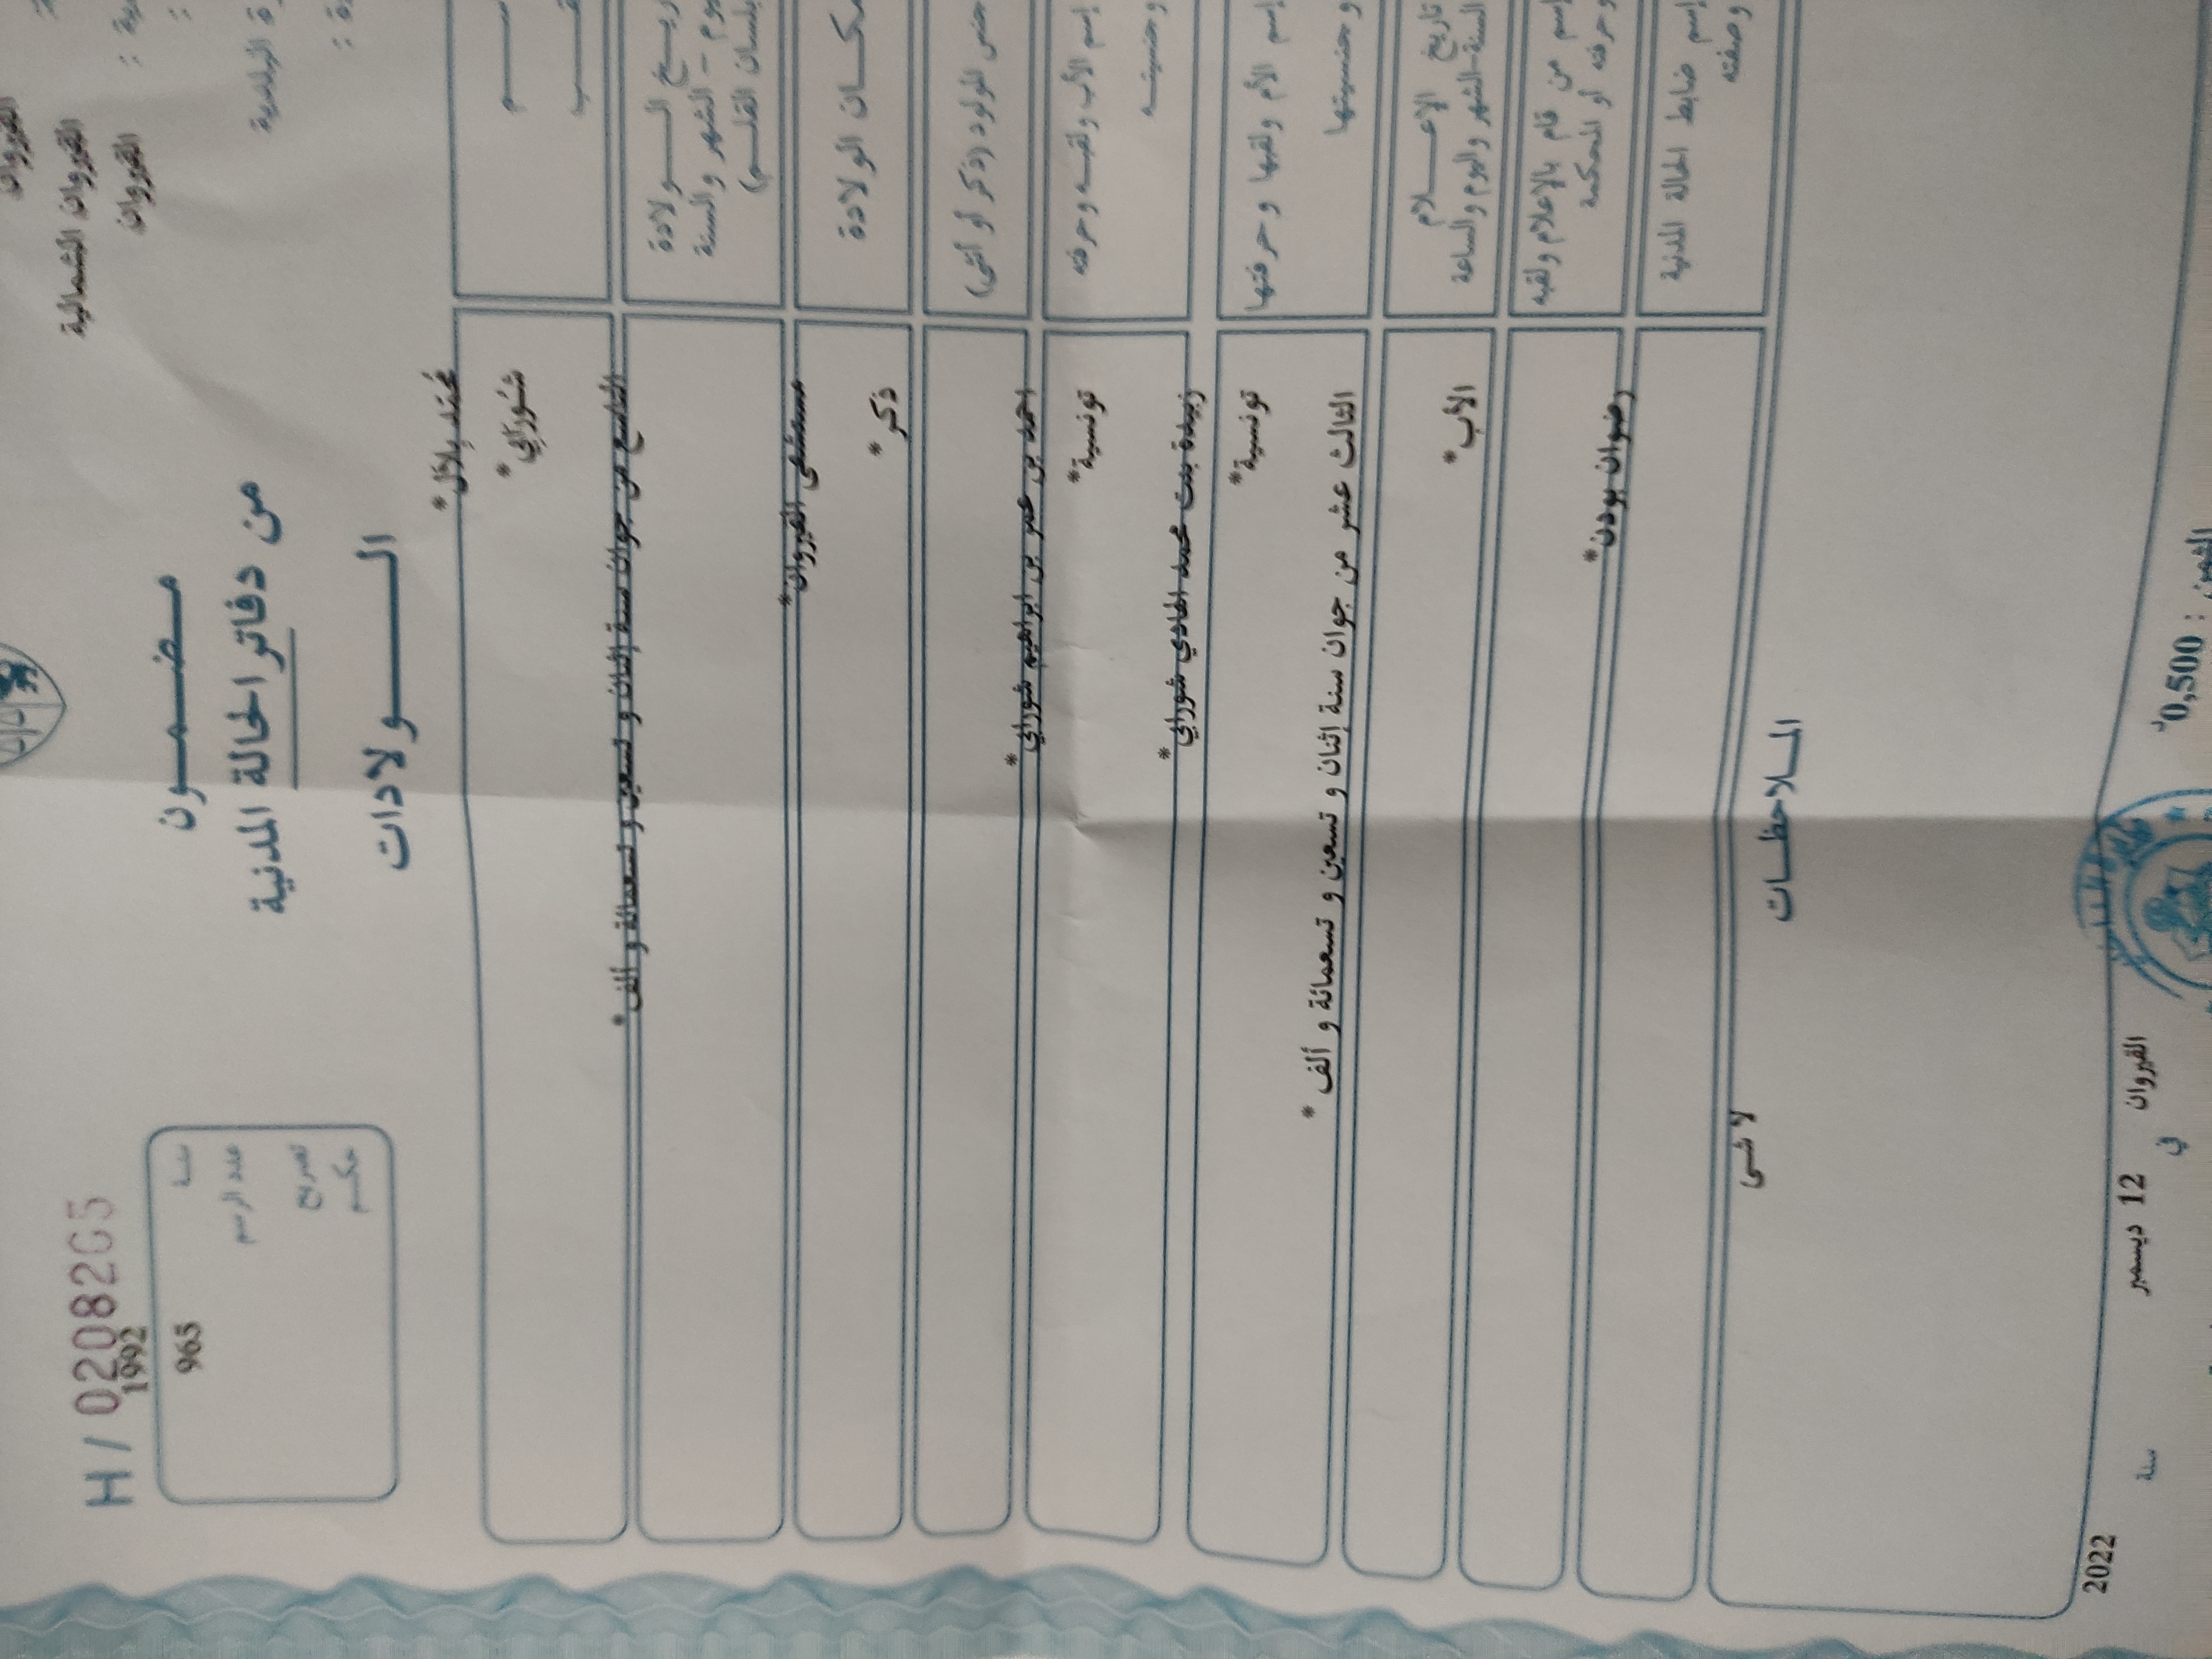 القيروان
القيروان الشمالية
القيروان
H / 0208265
1992
965
عدد الرسم
تصريح
حكم
مضمون
من دفاتر الحالة المدنية
الولادات
محمد بلال*
شورابي*
الولادة
اليوم - الشهر والسنة
بلسان القلم)
التاسع من جوان سنة إثنان و تسعين و تسعمائة و ألف*
مكان الولادة
مستشفى القيروان*
جنس المولود (ذكر أو أنثى)
ذكر*
إسم الأب ولقبه وحرفته
وجنسيته
احمد بن عمر بن ابراهيم شورابي*
تونسية*
إسم الأم ولقبها وحرفتها
وجنسيتها
زبيدة بنت محمد الهادي شورابي*
تونسية*
تاريخ الإعلام
السنة-الشهر واليوم والساعة
الثالث عشر من جوان سنة إثنان و تسعين و تسعمائة و ألف *
إسم من قام بالإعلام ولقبه
وحرفته أو المحكمة
الأب*
إسم ضابط الحالة المدنية
وصفته
رضوان بودن*
الملاحظات
لا شى
القيروان في 12 ديسمبر سنة 2022
الثمن : 0,500د